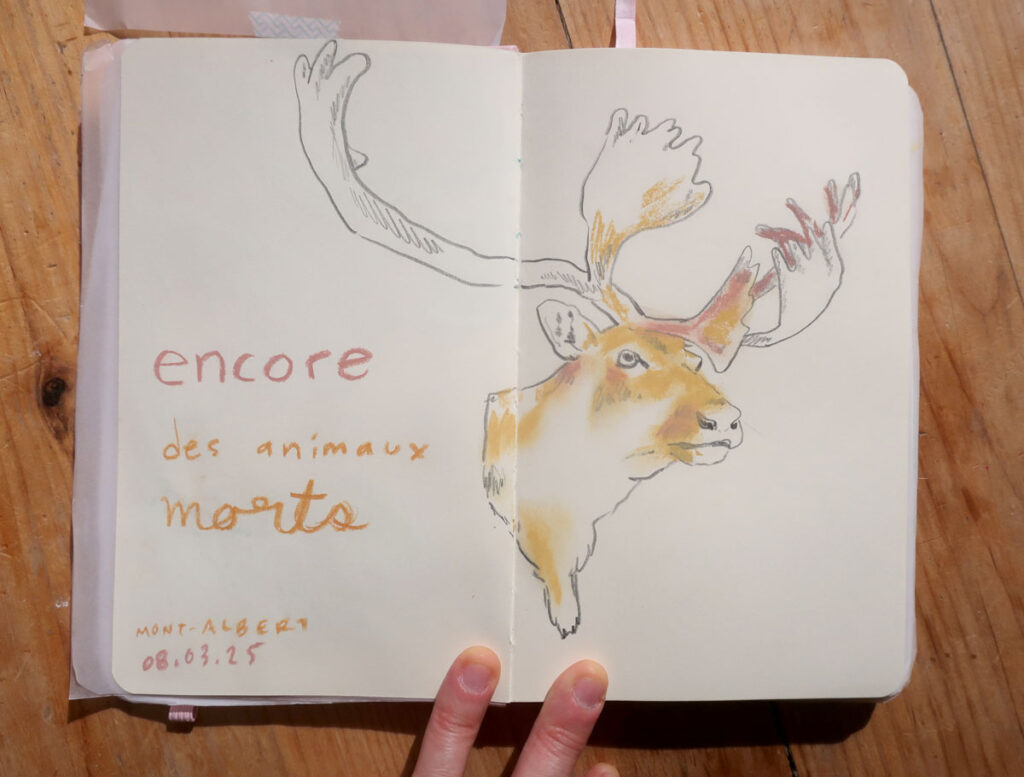 encore
des animaux
morts
MONT-ALBERT
08.03.25